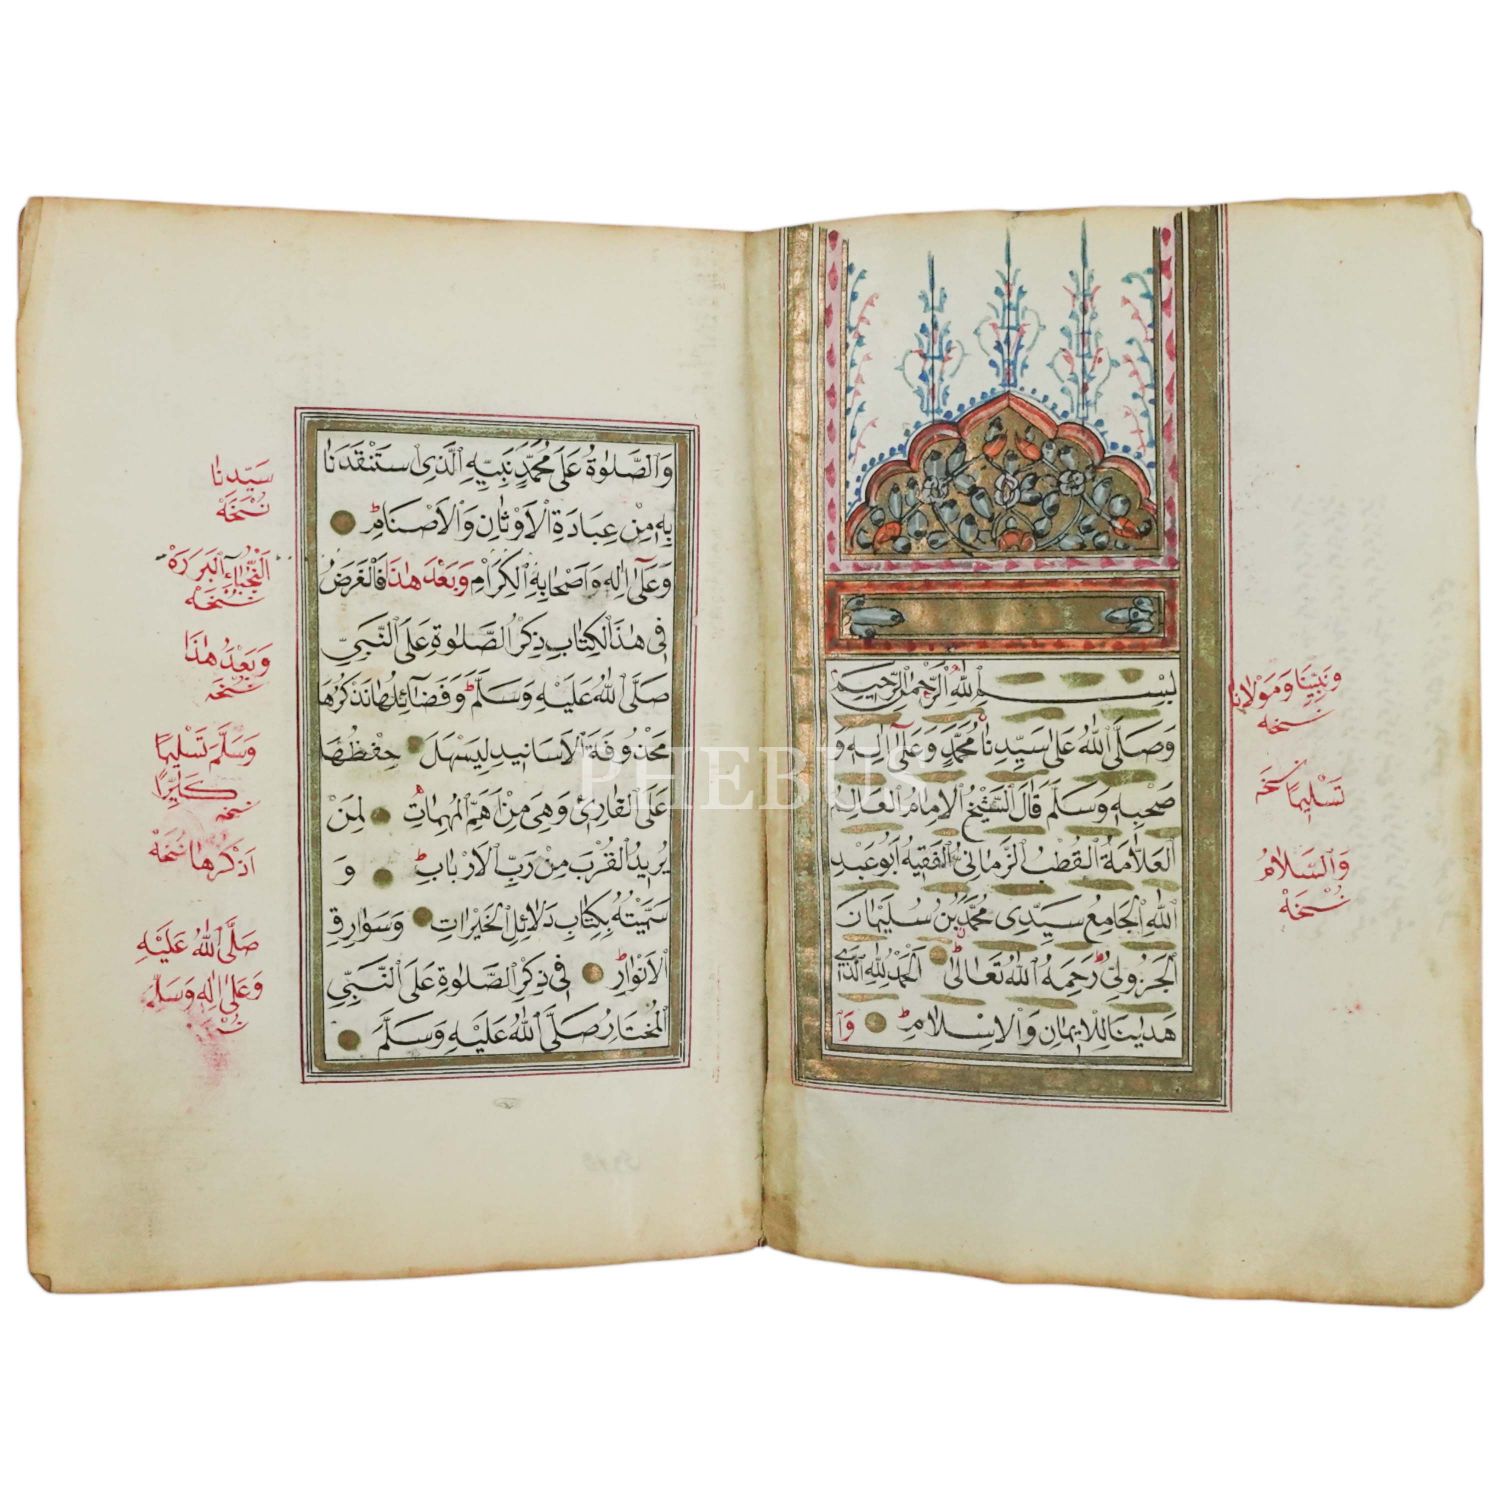 بِسْمِ اللهِ الرَّحْمٰنِ الرَّحِيمِ
وَصَلَّى اللهُ عَلٰى سَيِّدِنَا مُحَمَّدٍ وَعَلٰى اٰلِهِ وَ
صَحْبِهِ وَسَلَّمَ قَالَ الشَّيْخُ الْاِمَامُ الْعَالِمُ
الْعَلَّامَةُ الْقُطْبُ الزَّمَانِيُّ الْفَقِيهُ اَبُو عَبْدِ
اللهِ الْجَامِعُ سَيِّدِى مُحَمَّدُ بْنُ سُلَيْمَانَ
الْجَزُولِيُّ رَحِمَهُ اللهُ تَعَالٰى اَلْحَمْدُ لِلّٰهِ الَّذِى
هَدٰينَا لِلْاِيمَانِ وَالْاِسْلَامِ وَا
وَنَبِيِّنَا وَمَوْلَانَا
نُسْخَه
تَسْلِيمًا نُسْخَه
وَالسَّلَامُ
نُسْخَه
وَالصَّلٰوةُ عَلٰى مُحَمَّدٍ نَبِيِّهِ الَّذِى اسْتَنْقَدَنَا
بِهِ مِنْ عِبَادَةِ الْاَوْثَانِ وَالْاَصْنَامِ
وَعَلٰى اٰلِهِ وَاَصْحَابِهِ الْكِرَامِ وَبَعْدَ هٰذَا فَالْغَرَضُ
فِى هٰذَا الْكِتَابِ ذِكْرُ الصَّلٰوةِ عَلَى النَّبِيِّ
صَلَّى اللهُ عَلَيْهِ وَسَلَّمَ وَفَضَائِلُهَا نَذْكُرُهَا
مَحْذُوفَةَ الْاَسَانِيدِ لِيَسْهَلَ حِفْظُهَا
عَلَى الْقَارِئِ وَهِىَ مِنْ اَهَمِّ الْمُهِمَّاتِ لِمَنْ
يُرِيدُ الْقُرْبَ مِنْ رَبِّ الْاَرْبَابِ وَ
سَمَّيْتُهُ بِكِتَابِ دَلَائِلِ الْخَيْرَاتِ وَشَوَارِقِ
الْاَنْوَارِ فِى ذِكْرِ الصَّلٰوةِ عَلَى النَّبِيِّ
الْمُخْتَارِ صَلَّى اللهُ عَلَيْهِ وَسَلَّمَ
سَيِّدِنَا
نُسْخَه
النُّجَبَاءِ الْبَرَرَةِ
نُسْخَه
وَبَعْدُ هٰذَا
نُسْخَه
وَسَلَّمَ تَسْلِيمًا
كَثِيرًا
نُسْخَه
اَذْكُرُهَا نُسْخَه
صَلَّى اللهُ عَلَيْهِ
وَعَلٰى اٰلِهِ وَسَلَّمَ
نُسْخَه
PHEBUS